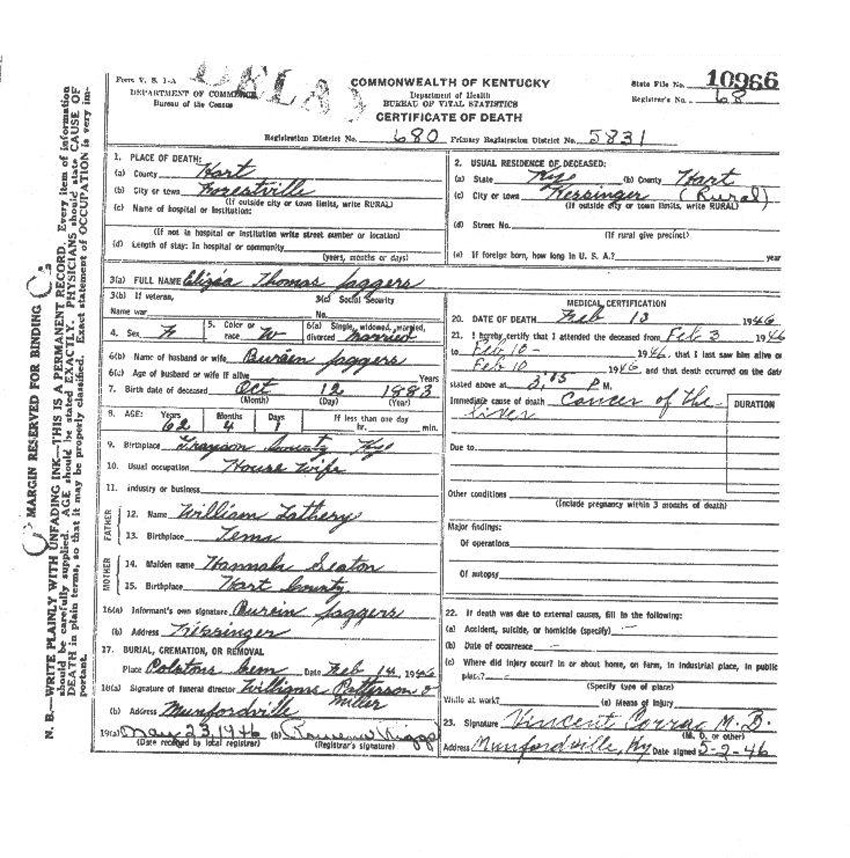 DELAY
Form V. S. 1-A
DEPARTMENT OF COMMERCE
Bureau of the Census
COMMONWEALTH OF KENTUCKY
Department of Health
BUREAU OF VITAL STATISTICS
CERTIFICATE OF DEATH
State File No. 10966
Registrar's No. 68
Registration District No. 680 Primary Registration District No. 5831
MARGIN RESERVED FOR BINDING
N. B.—WRITE PLAINLY WITH UNFADING INK—THIS IS A PERMANENT RECORD. Every item of information
should be carefully supplied. AGE should be stated EXACTLY. PHYSICIANS should state CAUSE OF
DEATH in plain terms, so that it may be properly classified. Exact statement of OCCUPATION is very im-
portant.
1. PLACE OF DEATH:
(a) County Hart
(b) City or town Forestville
(If outside city or town limits, write RURAL)
(c) Name of hospital or institution:
(If not in hospital or institution write street number or location)
(d) Length of stay: In hospital or community
(years, months or days)
2. USUAL RESIDENCE OF DECEASED:
(a) State Ky (b) County Hart
(c) City or town Kessinger (Rural)
(If outside city or town limits, write RURAL)
(d) Street No.
(If rural give precinct)
(e) If foreign born, how long in U. S. A.? year
3(a) FULL NAME Thomas Jaggers
3(b) If veteran,
Name war
3(c) Social Security
No.
4. Sex F
5. Color or
race W
6(a) Single, widowed, married,
divorced Married
6(b) Name of husband or wife Jaggers
6(c) Age of husband or wife if alive Years
7. Birth date of deceased Oct 12 1883
(Month) (Day) (Year)
8. AGE: Years Months Days If less than one day
62 4 1 hr. min.
9. Birthplace Grayson County Ky
10. Usual occupation House Wife
11. Industry or business
FATHER
12. Name William
13. Birthplace
MOTHER
14. Maiden name Hannah Seaton
15. Birthplace Hart County
16(a) Informant's own signature Jaggers
(b) Address Kessinger
17. BURIAL, CREMATION, OR REMOVAL
Place Colstons Cem Date Feb 14, 1946
18(a) Signature of funeral director Williams Patterson &
Miller
(b) Address Munfordville
19(a) May 23, 1946 (b)
(Date received by local registrar) (Registrar's signature)
MEDICAL CERTIFICATION
20. DATE OF DEATH Feb 13 1946
21. I hereby certify that I attended the deceased from Feb 3 1946
to Feb 10 - 1946, that I last saw him alive on
Feb 10 1946, and that death occurred on the date
stated above at 3,05 P M.
Immediate cause of death Cancer of the
liver
DURATION
Due to
Other conditions
(Include pregnancy within 3 months of death)
Major findings:
Of operations
Of autopsy
22. If death was due to external causes, fill in the following:
(a) Accident, suicide, or homicide (specify) —
(b) Date of occurrence —
(c) Where did injury occur? In or about home, on farm, in industrial place, in public
place?
(Specify type of place)
While at work? (e) Means of Injury
23. Signature Vincent Corrao M. D.
(M. D. or other)
Address Munfordville, Ky Date signed 5-2-46